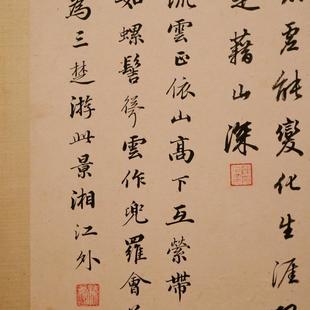 能變化生涯
藉山深
流雲正依山高下互縈帶
如螺髻雲作兜羅會
為三楚游此景湘江外